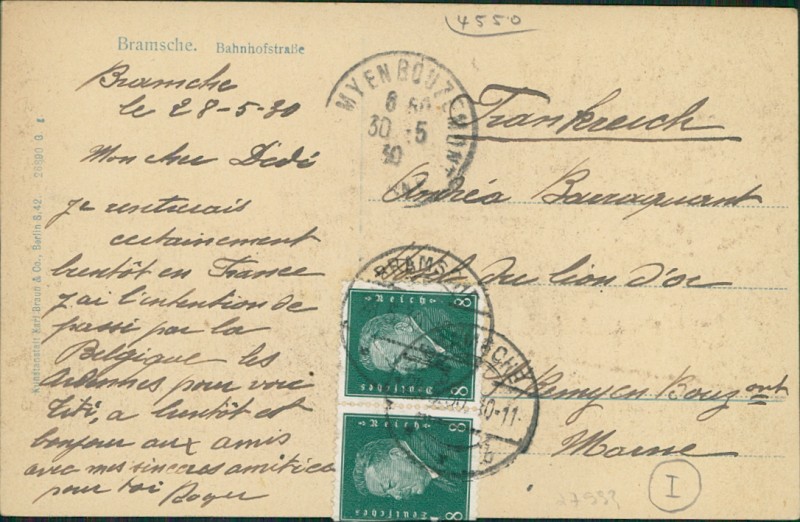 4550
Bramsche. Bahnhofstraße
Bramsche
le 28-5-30
Mon cher Dédé
je rentrerais
certainement
bientôt en France
j'ai l'intention de
passé par la
Belgique les
Ardennes pour voir
Titi, a bientôt et
bonjour aux amis
avec mes sinceres amitiés
pour toi Roger
Kunstanstalt Karl Braun & Co., Berlin S.42. 26890 G.
MY EN BOUZEMONT
6
30 -5
30
Frankreich
Andréa Barraquant
du lion d'or
Remy en Bouzemont
Marne
BRAMSCHE
30.11-
8 8
Deutsches Reich
8 8
I